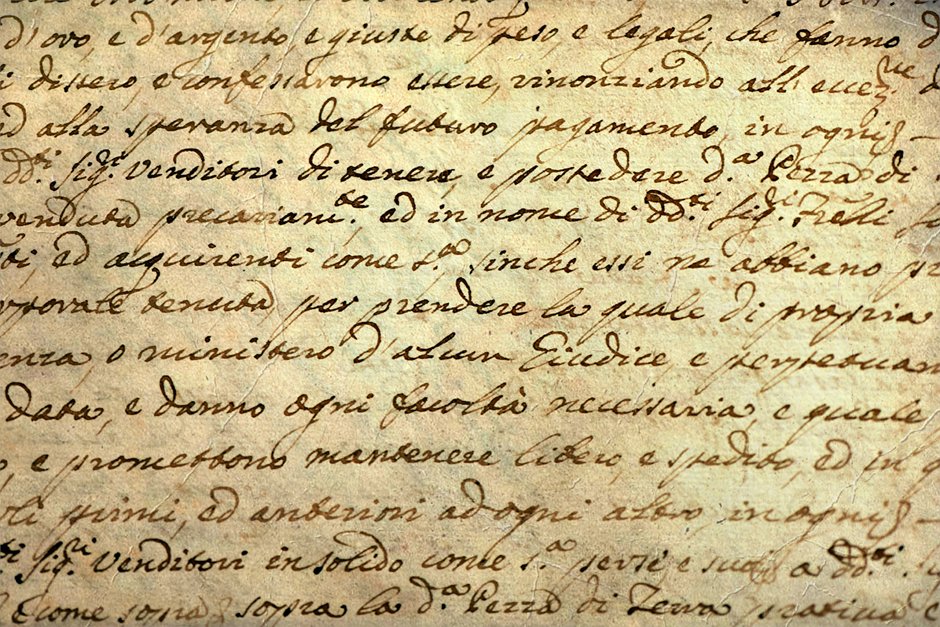 d'oro, e d'argento e giuste di peso e legali, che fanno d
i dissero, e confessarono essere, rinonziando all' eccez.ne d
ed alla speranza del futuro pagamento, in ogni
dd.ti Sig.ri Venditori di tenere, e possedere d.a Pezza di
venduta precariam.te, ed in nome di dd.ti Sig.ri Fr̃elli
ti, ed acquirenti come s.a sinche essi ne abbiano
corporale tenuta per prendere la quale di propria
enza, o ministero d'alcun Giudice, e perpetuam
data, e danno ogni facoltà necessaria, e quale
, e promettono mantenere libero, e spedito, ed in q
oli primi, ed anteriori ad ogni altro, in ogni
ti Sig.ri Venditori in solido come s.a per se, e suoi a dd.ti
e come sopra sopra la d.a Pezza di Terra prativa e